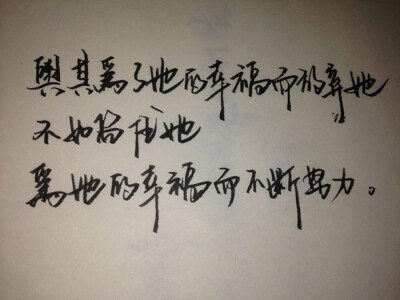 與其爲了她的幸福而放棄她
不如留住她
爲她的幸福而不斷努力。